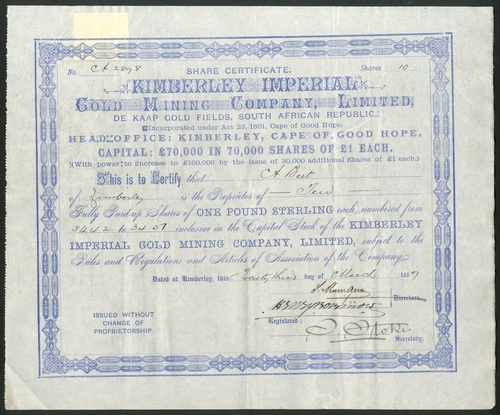 No. CA 2898 SHARE CERTIFICATE. Shares 10
KIMBERLEY IMPERIAL
GOLD MINING COMPANY, LIMITED,
DE KAAP GOLD FIELDS, SOUTH AFRICAN REPUBLIC.
Incorporated under Act 23, 1861, Cape of Good Hope.
HEAD OFFICE: KIMBERLEY, CAPE OF GOOD HOPE,
CAPITAL: £70,000 IN 70,000 SHARES OF £1 EACH.
(With power to increase to £100,000 by the issue of 30,000 additional Shares of £1 each.)
This is to Certify that
of Kimberley is the Proprietor of Ten
Fully Paid-up Shares of ONE POUND STERLING each, numbered from
to inclusive in the Capital Stock of the KIMBERLEY
IMPERIAL GOLD MINING COMPANY, LIMITED, subject to the
Rules and Regulations and Articles of Association of the Company.
Dated at Kimberley, this day of March 188
Directors.
ISSUED WITHOUT
CHANGE OF
PROPRIETORSHIP.
Registered:
Secretary.